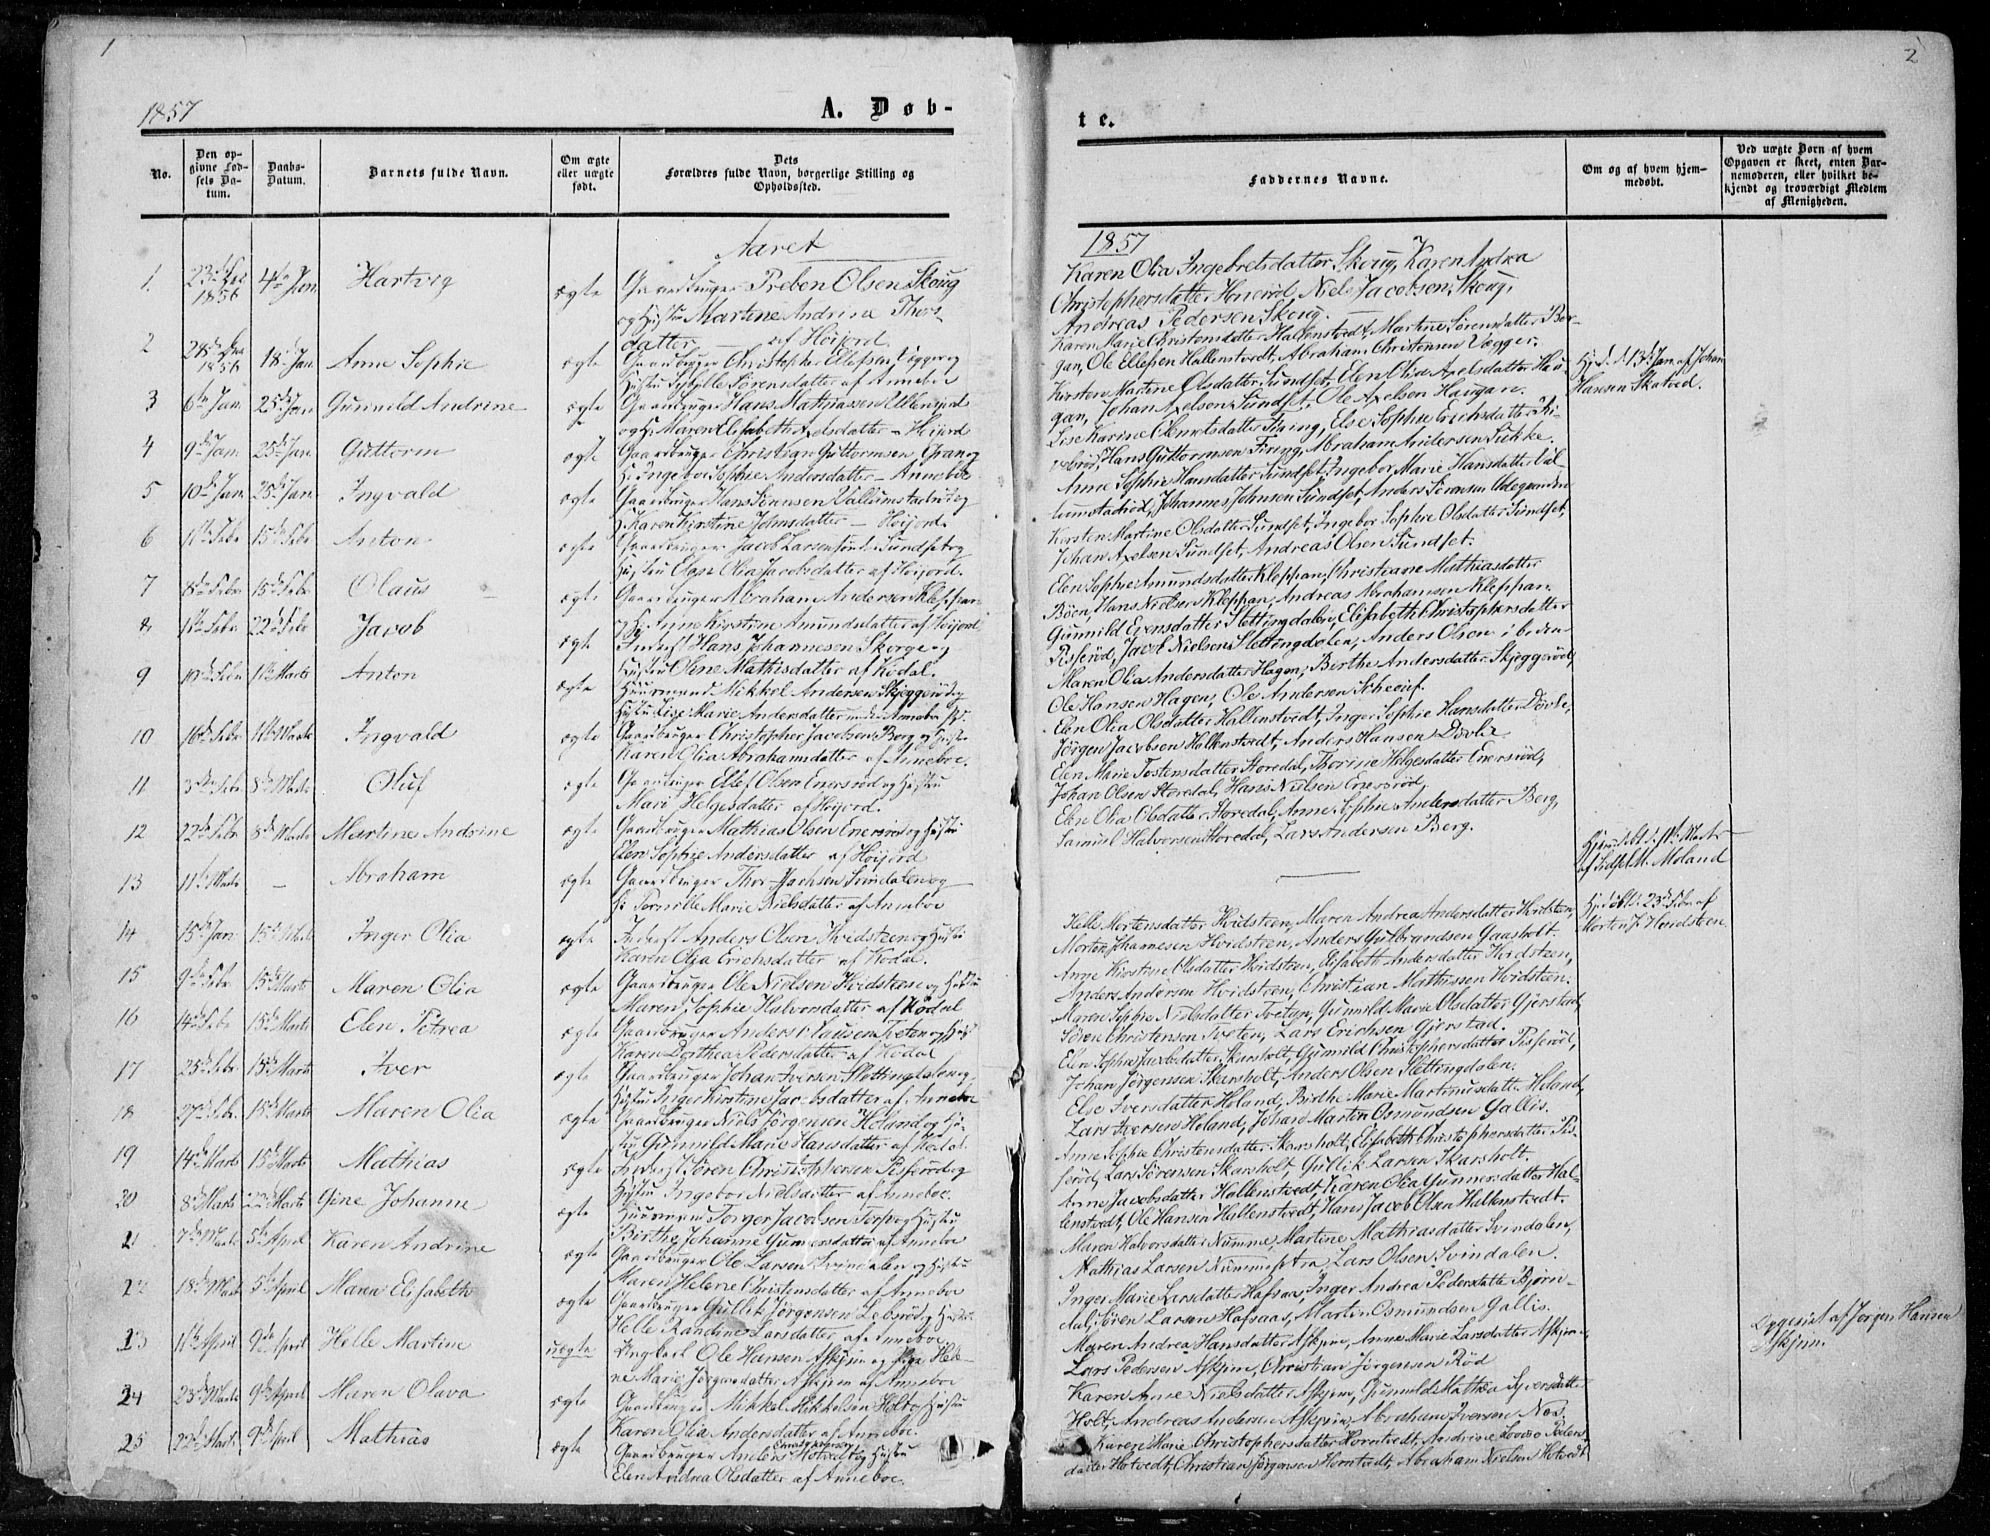 1
2
1857
A. Døb-
te.
No.
Den op-
givne Fød-
sels Da-
tum.
Daabs-
Datum.
Barnets fulde Navn.
Om ægte
eller uægte
født.
Dets
Forældres fulde Navn, borgerlige Stilling og
Opholdssted.
Faddernes Navne.
Om og af hvem hjem-
medøbt.
Ved uægte Børn af hvem
Opgaven er skeet, enten Bar-
nemoderen, eller hvilket be-
kjendt og troværdigt Medlem
af Menigheden.
Aaret
1857
1 1856 4de Jan. Hartvig ægte Gaardbruger Preben Olsen Skoug
og Hustru Martine Andrine Thors-
datter af Høijord.
Karen Olia Ingebretsdatter Skoug, Karen Andrea
Christophersdatter Honerød, Niels Jacobsen Skoug,
Andreas Pedersen Skoug.
2 1856 18de Jan. Anne Sophie ægte Gaardbruger Christopher Ellefsen
Hustru Sørensdatter af Anneboe
Karen Marie Christensdatter Hallenstvedt, Martine Sørensdatter Ber-
gan, Ole Ellefsen Hallenstvedt, Abraham Christensen
3 6te Jan. 25de Jan. Gunnild Andrine ægte Gaardbruger Hans Mathiassen
Maren Elisabeth Axelsdatter - Høijord
Kirsten Martine Olsdatter Sundset, Elen Olia Axelsdatter Hau-
gan, Johan Axelsen Sundset, Ole Axelsen Haugan.
13de Jan. af Johan
Hansen Skatved.
4 9de Jan. 25de Jan. Guttorm ægte Gaardbruger Christian Guttormsen
Ingebor Sophie Andersdatter - Anneboe
Lise Karine Firing, Else Sophie Erichsdatter
Hans Guttormsen Firing, Abraham Andersen
5 10de Jan. 25de Jan. Ingvald ægte Gaardbruger Hans
Karen Kirstine Johnsdatter - Høijord.
Anne Sophie Hansdatter Sundset, Ingebor Marie Hansdatter Val-
lumstadrød, Johannes Johnsen Sundset, Anders Sørensen Ødegaarden
6 15de Febr Anton ægte Gaardbruger Jacob Larsen Sundset og
Hustru Olia Jacobsdatter af Høijord.
Kirsten Martine Olsdatter Sundset, Ingebor Sophie Olsdatter Sundset,
Johan Axelsen Sundset, Andreas Olsen Sundset.
7 8de Febr. 15de Febr Olaus ægte Gaardbruger Abraham Andersen Kleppan
Anne Kirstine Amundsdatter af Høijord
Elen Sophie Amundsdatter Kleppan, Christiane Mathiasdatter
Bøen, Hans Nielsen Kleppan, Andreas Abrahamsen Kleppan.
8 22de Febr Jacob ægte Inderst Hans Johannesen Skorge og
Hustru Oline Mathisdatter af Kodal.
Gunnild Evensdatter Slettingdalen, Elisabeth Christophersdatter
Pisserød, Jacob Nielsen Slettingdalen, Anders Olsen
9 10de Febr 1ste Marts Anton ægte Huusmand Mikkel Andersen Skjeggerød og
Hustru Lise Marie Andersdatter Anneboe
Maren Olia Andersdatter Hagen, Berthe Andersdatter Skjeggerød,
Ole Hansen Hagen, Ole Andersen
10 16de Febr 1ste Marts Ingvald ægte Gaardbruger Christopher Jacobsen Berg og Hustru
Karen Olia Abrahamsdatter af Anneboe.
Elen Olia Olsdatter Hallenstvedt, Inger Sophie Hansdatter Døvle,
Jørgen Jacobsen Hallenstvedt, Anders Hansen Døvle
11 3die Febr. 8de Marts Oluf ægte Gaardbruger Ellef Olsen Enersrød og Hustru
Mari Helgesdatter af Høijord.
Elen Marie Tostensdatter Storedal, Thorine Helgesdatter Enersrød,
Johan Olsen Storedal, Hans Nielsen Enersrød
12 22de Febr 8de Marts Martine Andrine ægte Gaardbruger Mathias Olsen Enersrød og Hustru
Elen Sophie Andersdatter af Høijord
Elen Olia Olsdatter Storedal, Anne Sophie Andersdatter Berg,
Samuel Halvorsen Storedal, Lars Andersen Berg.
13 11te Marts - Abraham ægte Gaardbruger Thor Svindalen og
Pernille Marie Nielsdatter af Anneboe
Hjemmedøbt d. 11te Marts
Moland
14 15de Jan 15de Marts Inger Olia ægte Inderst Anders Olsen Hvidsteen og Hustru
Karen Olia Erichsdatter af Kodal.
Helle Mortensdatter Hvidsteen, Maren Andrea Andersdatter Hvidsteen,
Morten Johannesen Hvidsteen, Anders Gulbrandsen Gaasholt.
Hj.døbt 23de Febr. af
Morten J. Hvidsteen
15 9de Febr. 15de Marts Maren Olia ægte Gaardbruger Ole Nielsen Hvidsteen og Hustru
Maren Sophie Halvorsdatter af Kodal
Anne Kirstine Olsdatter Hvidsteen, Elisabeth Andersdatter Hvidsteen,
Anders Andersen Hvidsteen, Christian Mathissen Hvidsteen.
16 14de Febr 15de Marts Elen Petrea ægte Gaardbruger Anders Tveten og Hust
Karen Dorthea Pedersdatter af Kodal
Maren Sophie Nielsdatter Tveten, Gunnild Marie Olsdatter Gjerstad,
Søren Christensen Tveten, Lars Erichsen Gjerstad.
17 25de Febr. 15de Marts Iver ægte Gaardbruger Johan Iversen Slettingdalen og
Hustru Inger Kirstine Jacobsdatter af Anneboe
Elen Sophie Jacobsdatter Skarsholt, Gunnild Christophersdatter Pisserød,
Johan Jørgensen Skarsholt, Anders Olsen Slettingdalen.
18 27de Febr. 15de Marts Maren Olia ægte Gaardbruger Niels Jørgensen Holand og Hu-
stru Gunnild Marie Hansdatter af Kodal.
Else Iversdatter Holand, Birthe Marie Martinusdatt. Holand,
Lars Iversen Holand, Johan Martin Osmundsen Gallis.
19 14de Marts 15de Marts Mathias ægte Søren Christophersen Pisserød og
Hustru Ingebor Nielsdatter af Anneboe.
Anne Sophie Christensdatter Skarsholt, Elisabeth Christophersdatter Pis-
serød, Lars Sørensen Skarsholt, Gullik Larsen Skarsholt.
20 8de Marts 22de Marts Gine Johanne ægte Huusmand Torger Jacobsen Torp og Hustru
Birthe Johanne Gunnersdatter af Anneboe
Anne Jacobsdatter Hallenstvedt, Karen Olia Gunnersdatter Hal-
lenstvedt, Ole Hansen Hallenstvedt, Hans Jacob Olsen Hallenstvedt.
21 7de Marts 5te April Karen Andrine ægte Gaardbruger Ole Larsen Svindalen og Hustru
Maren Helene Christensdatter af Anneboe
Maren Halvorsdatter Numme, Martine Mathiasdatter Svindalen,
Mathias Larsen Numme, Lars Olsen Svindalen.
22 18de Marts 5te April Maren Elisabeth ægte Gaardbruger Gullik Jørgensen Lebsrød og
Helle Randine Larsdatter af Anneboe
Inger Marie Larsdatter Hafsaas, Inger Andrea Pedersdatter Bjørn-
Søren Larsen Hafsaas, Martin Osmundsen Gallis.
23 9de April Helle Martine uægte Ungkarl Ole Hansen Askjem og Hele-
ne Marie Jørgensdatter Askjem af Anneboe
Maren Andrea Hansdatter Askjem, Anne Marie Larsdatter Askjem,
Lars Pedersen Askjem, Christian Jørgensen Rød
Opgivet af Jørgen Hansen
Askjem.
24 23de Marts 9de April Maren Olava ægte Gaardbruger Mikkel Mikkelsen Holt og Hustru
Karen Olia Andersdatter af Anneboe.
Karen Anne Nielsdatter Askjem, Gunnild Mathea Syversdatter
Holt, Andreas Andersen Askjem, Abraham Iversen Næs.
25 22de Marts 9de April Mathias ægte Gaardbruger Anders Hotvedt og Hustru
Elen Andrea Olsdatter af Anneboe.
Karen Marie Christophersdatter Horntvedt, Andrine Lovise Peders-
datter Hotvedt, Christian Jørgensen Horntvedt, Abraham Nielsen Hotvedt